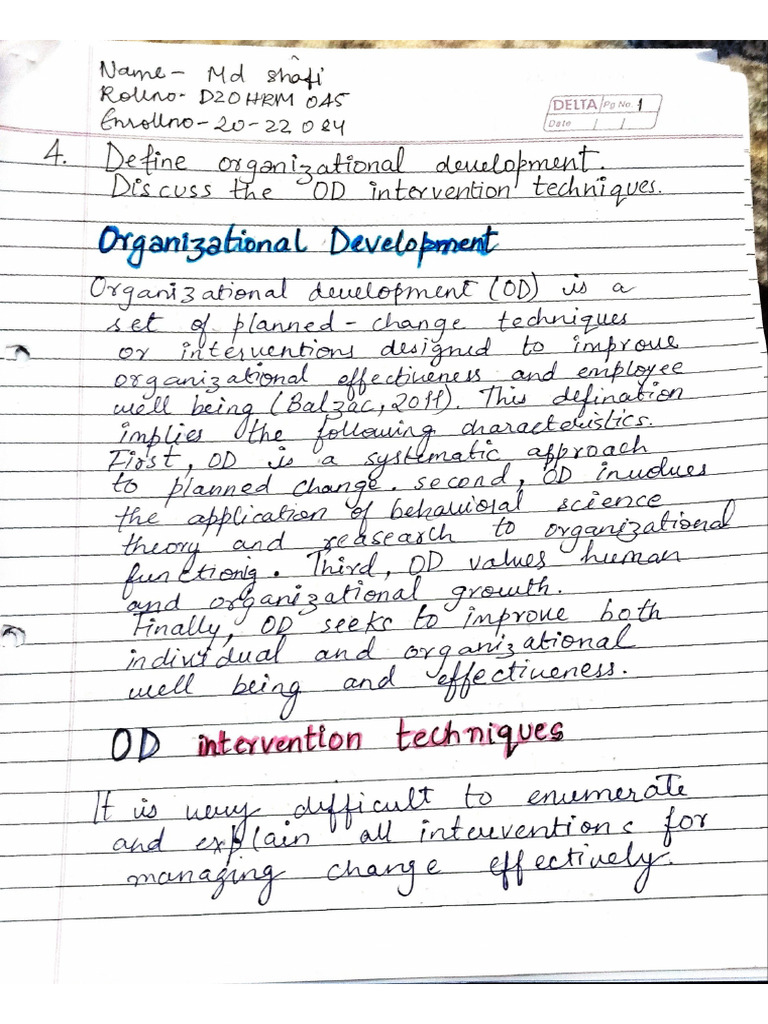 Name- Md Shafi
Rollno- D20HRM 045
Enrollno-20-22084
DELTA Pg No. 1
Date / /
4. Define organizational development.
Discuss the OD intervention techniques.
Organizational Development
Organizational development (OD) is a
set of planned-change techniques
or interventions designed to improve
organizational effectiveness and employee
well being (Balzac, 2011). This defination
implies the following characteristics.
First, OD is a systematic approach
to planned change. second, OD involves
the application of behavioral science
theory and reasearch to organizational
functionig. Third, OD values human
and organizational growth.
Finally, OD seeks to improve both
individual and organizational
well being and effectiveness.
OD intervention techniques
It is very difficult to enumerate
and explain all interventions for
managing change effectively.